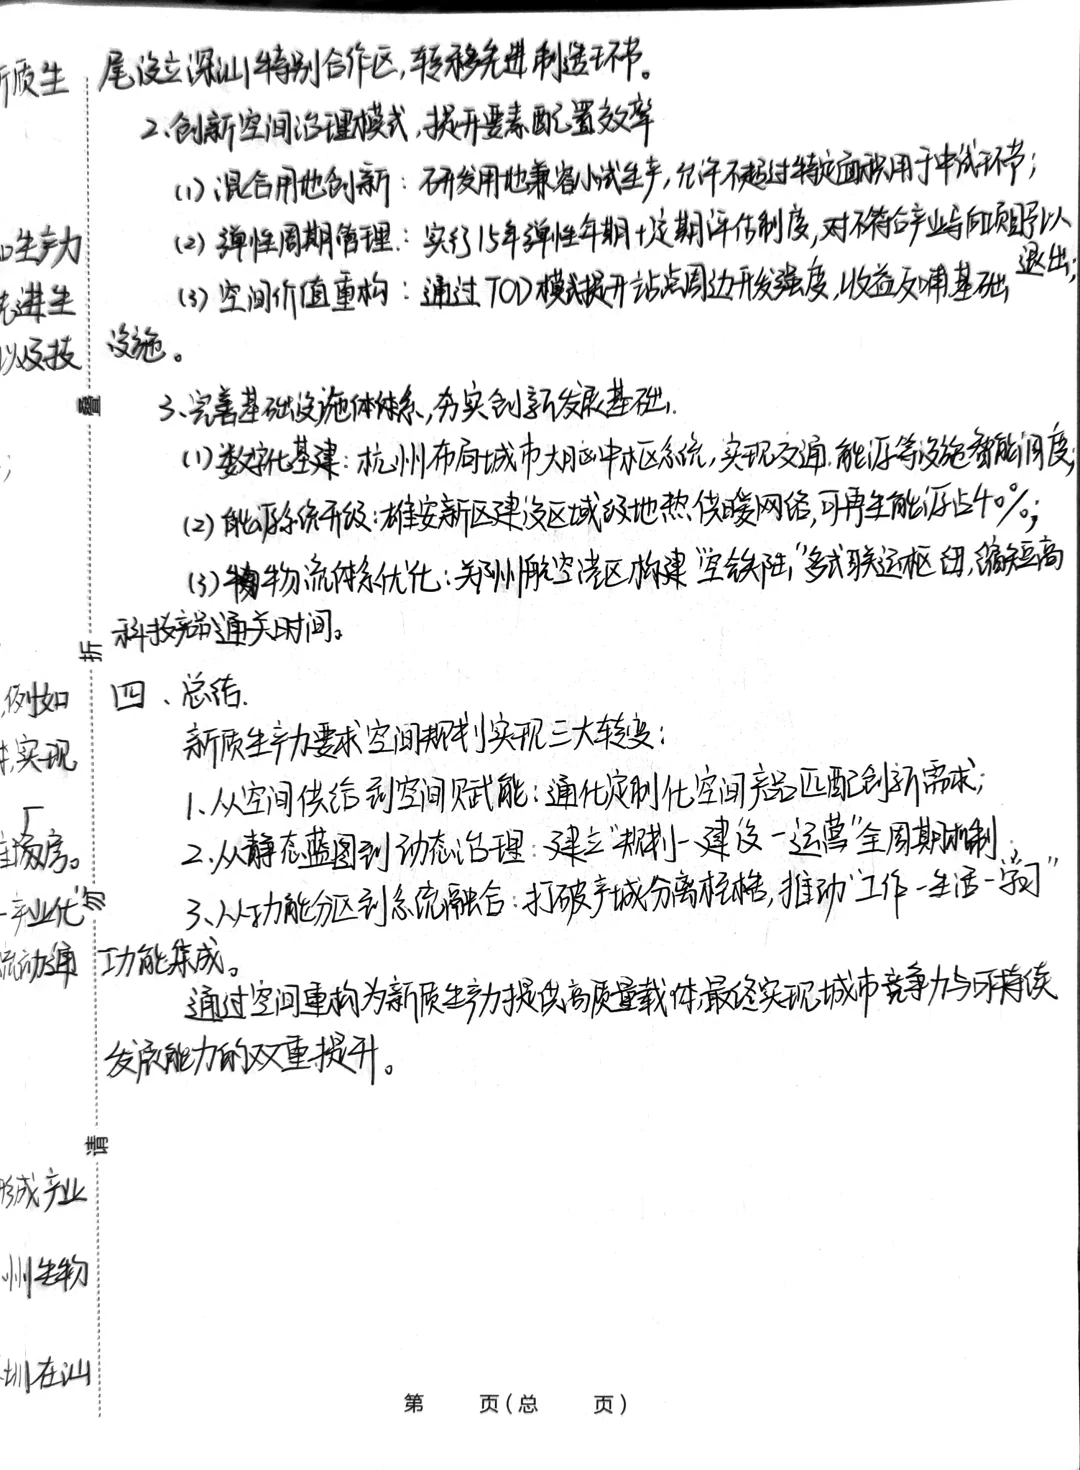 尾设立深汕特别合作区，转移先进制造环节。
2、创新空间治理模式，提升要素配置效率
(1) 混合用地创新：研发用地兼容小试生产，允许不超过特定面积用于中试环节；
(2) 弹性周期管理：实行15年弹性年期+定期评估制度，对不符合产业导向项目予以退出；
(3) 空间价值重构：通过TOD模式提升站点周边开发强度，收益反哺基础
设施。
3、完善基础设施体系，夯实创新发展基础.
(1) 数字化基建：杭州布局城市大脑中枢系统，实现交通.能源等设施智能调度；
(2) 能源系统升级：雄安新区建设区域级地热供暖网络，可再生能源占40%；
(3) 物流体系优化：郑州航空港区构建"空铁陆"多式联运枢纽，缩短高
科技产品通关时间。
四、总结.
新质生产力要求空间规划实现三大转变：
1.从空间供给到空间赋能：通化定制化空间产品匹配创新需求；
2.从静态蓝图到动态治理：建立"规划—建设—运营"全周期机制
3、从功能分区到系统融合：打破产城分离桎梏，推动"工作—生活—学习"
功能集成。
通过空间重构为新质生产力提供高质量载体，最终实现城市竞争力与可持续
发展能力的双重提升。
质生
生产力
先进生
以及技
叠
折
例如
实现
厂
房。
产业化
勿
流动通
请
形成产业
州生物
圳在汕
第 页（总 页）